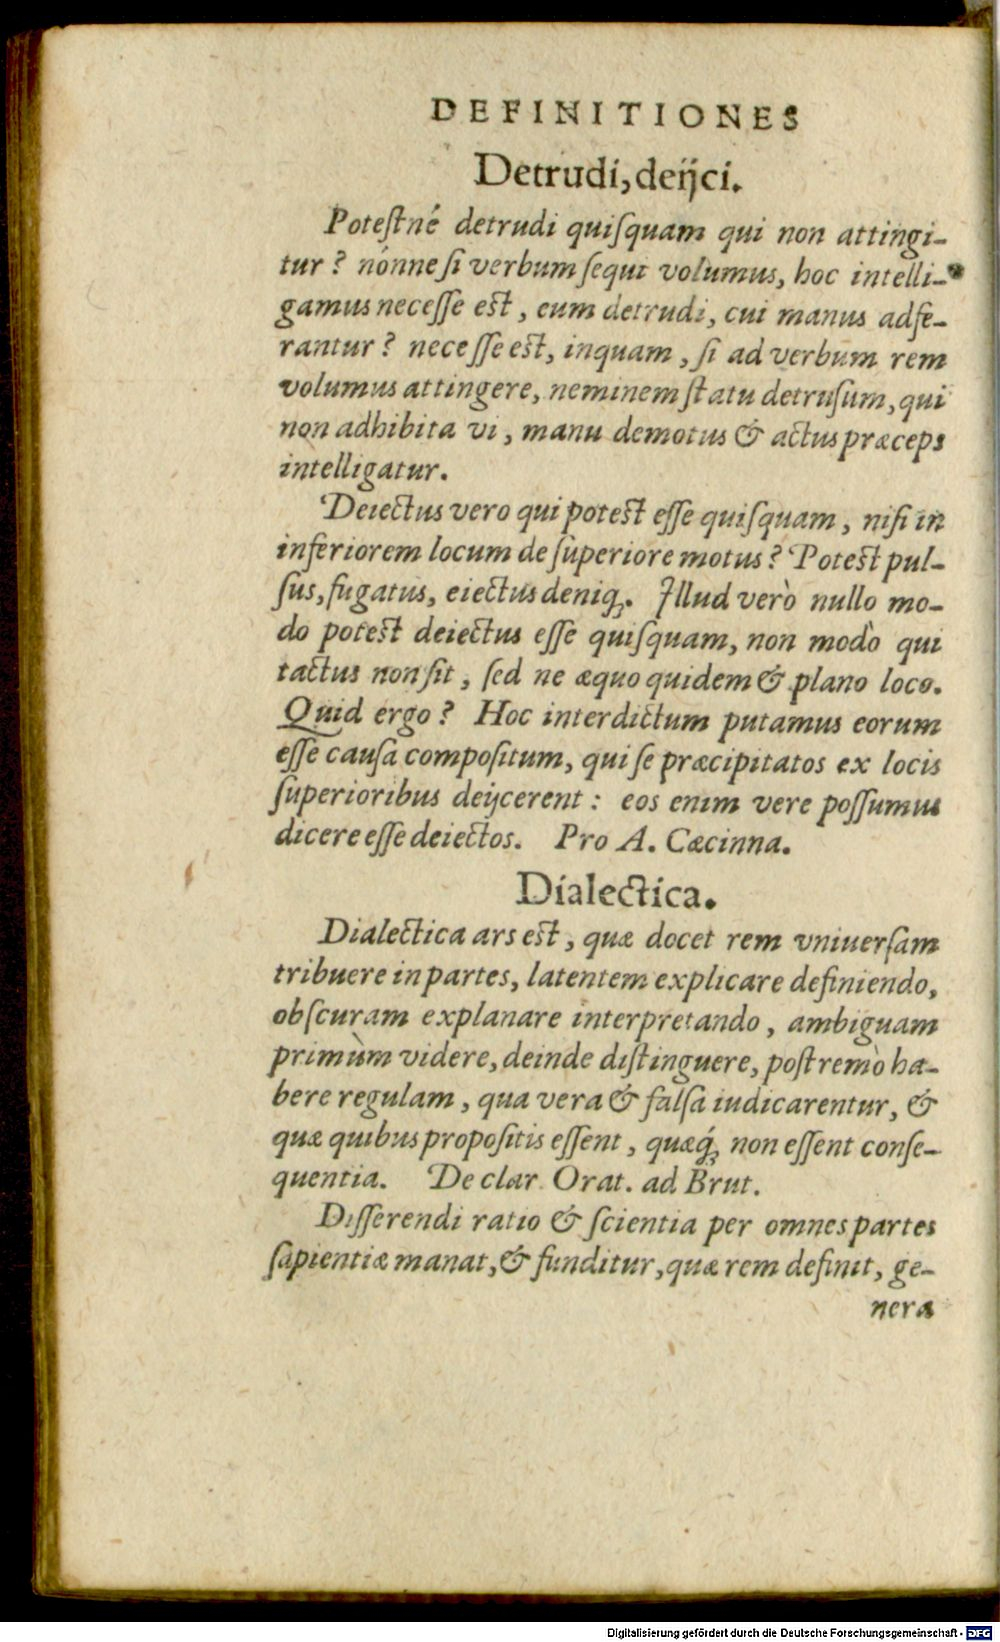 DEFINITIONES
Detrudi, deijci.
Potestné detrudi quiſquam qui non attingi-
tur? nónne ſi verbum ſequi volumus, hoc intelli-
gamus neceſſe est, eum detrudi, cui manus adfe-
rantur? neceſſe est, inquam, ſi ad verbum rem
volumus attingere, neminem ſtatu detruſum, qui
non adhibita vi, manu demotus & actus præceps
intelligatur.
Deiectus vero qui potest eſſe quiſquam, niſi in
inferiorem locum de ſuperiore motus? Potest pul-
ſus, fugatus, eiectus deniq;. Illud verò nullo mo-
do potest deiectus eſſe quiſquam, non modò qui
tactus non ſit, ſed ne æquo quidem & plano loco.
Quid ergo? Hoc interdictum putamus eorum
eſſe cauſa compoſitum, qui ſe præcipitatos ex locis
ſuperioribus deijcerent: eos enim vere poſſumus
dicere eſſe deiectos. Pro A. Cæcinna.
Dialectica.
Dialectica ars est, quæ docet rem vniuerſam
tribuere in partes, latentem explicare definiendo,
obſcuram explanare interpretando, ambiguam
primùm videre, deinde diſtinguere, poſtremò ha-
bere regulam, qua vera & falſa iudicarentur, &
quæ quibus propoſitis eſſent, quæq́; non eſſent conſe-
quentia. De clar. Orat. ad Brut.
Diſſerendi ratio & ſcientia per omnes partes
ſapientiæ manat, & funditur, quæ rem definit, ge-
nera
Digitalisierung gefördert durch die Deutsche Forschungsgemeinschaft - DFG